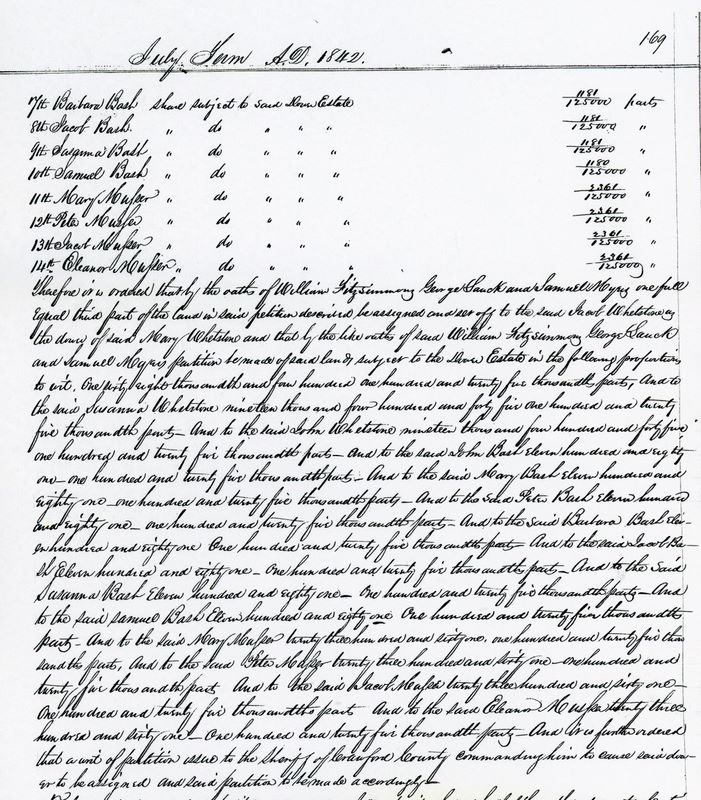 169
July Term A.D. 1842.
7th Barbara Bash share subject to said Dower Estate 1181/125000 parts
8th Jacob Bash " do " " " 1181/125000 "
9th Susanna Bash " do " " " 1181/125000 "
10th Samuel Bash " do " " " 1180/125000 "
11th Mary Musser " do " " " 2361/125000 "
12th Peter Musser " do " " " 2361/125000 "
13th Jacob Musser " do " " " 2361/125000 "
14th Eleanor Musser " do " " " 2361/125000 "
Therefore it is ordered that by the oaths of William Fitzsimmons George Sauck and Samuel Myers one full
equal third part of the land in said petition described be assigned and set off to the said Jacob Whetstone as
the dower of said Mary Whetstone and that by the like oaths of said William Fitzsimmons George Sauck
and Samuel Myers partition be made of said lands subject to the Dower Estate in the following proportions
to wit, One sixty eight thousandth and four hundred one hundred and twenty five thousandth parts - And to
the said Susanna Whetstone nineteen thousand four hundred and forty five one hundred and twenty
five thousandth parts - And to the said John Whetstone nineteen thousand four hundred and forty five
one hundred and twenty five thousandths parts - And to the said John Bash Eleven hundred and eighty
one - one hundred and twenty five thousandth part - And to the said Mary Bash eleven hundred and
eighty one - one hundred and twenty five thousandths parts - And to the said Peter Bash Eleven hundred
and eighty one - one hundred and twenty five thousandths part - And to the said Barbara Bash Elev-
en hundred and eighty one One hundred and twenty five thousandth parts - And to the said Jacob Ba-
sh Eleven hundred and eighty one - One hundred and twenty five thousandth parts - And to the said
Susanna Bash Eleven hundred and eighty one - One hundred and twenty five thousandth parts - And
to the said Samuel Bash Eleven hundred and eighty one One hundred and twenty five thousandths
parts - And to the said Mary Musser twenty three hundred and sixty one, one hundred and twenty five thou
sandth parts, And to the said Peter Musser twenty three hundred and sixty one - one hundred and
twenty five thousandth parts And to the said Jacob Musser twenty three hundred and sixty one -
One hundred and twenty five thousandths parts And to the said Eleanor Musser twenty three
hundred and sixty one - One hundred and twenty five thousandth parts - And it is further ordered
that a writ of partition issue to the Sheriff of Crawford County commanding him to cause said dow-
er to be assigned and said partition to be made accordingly -